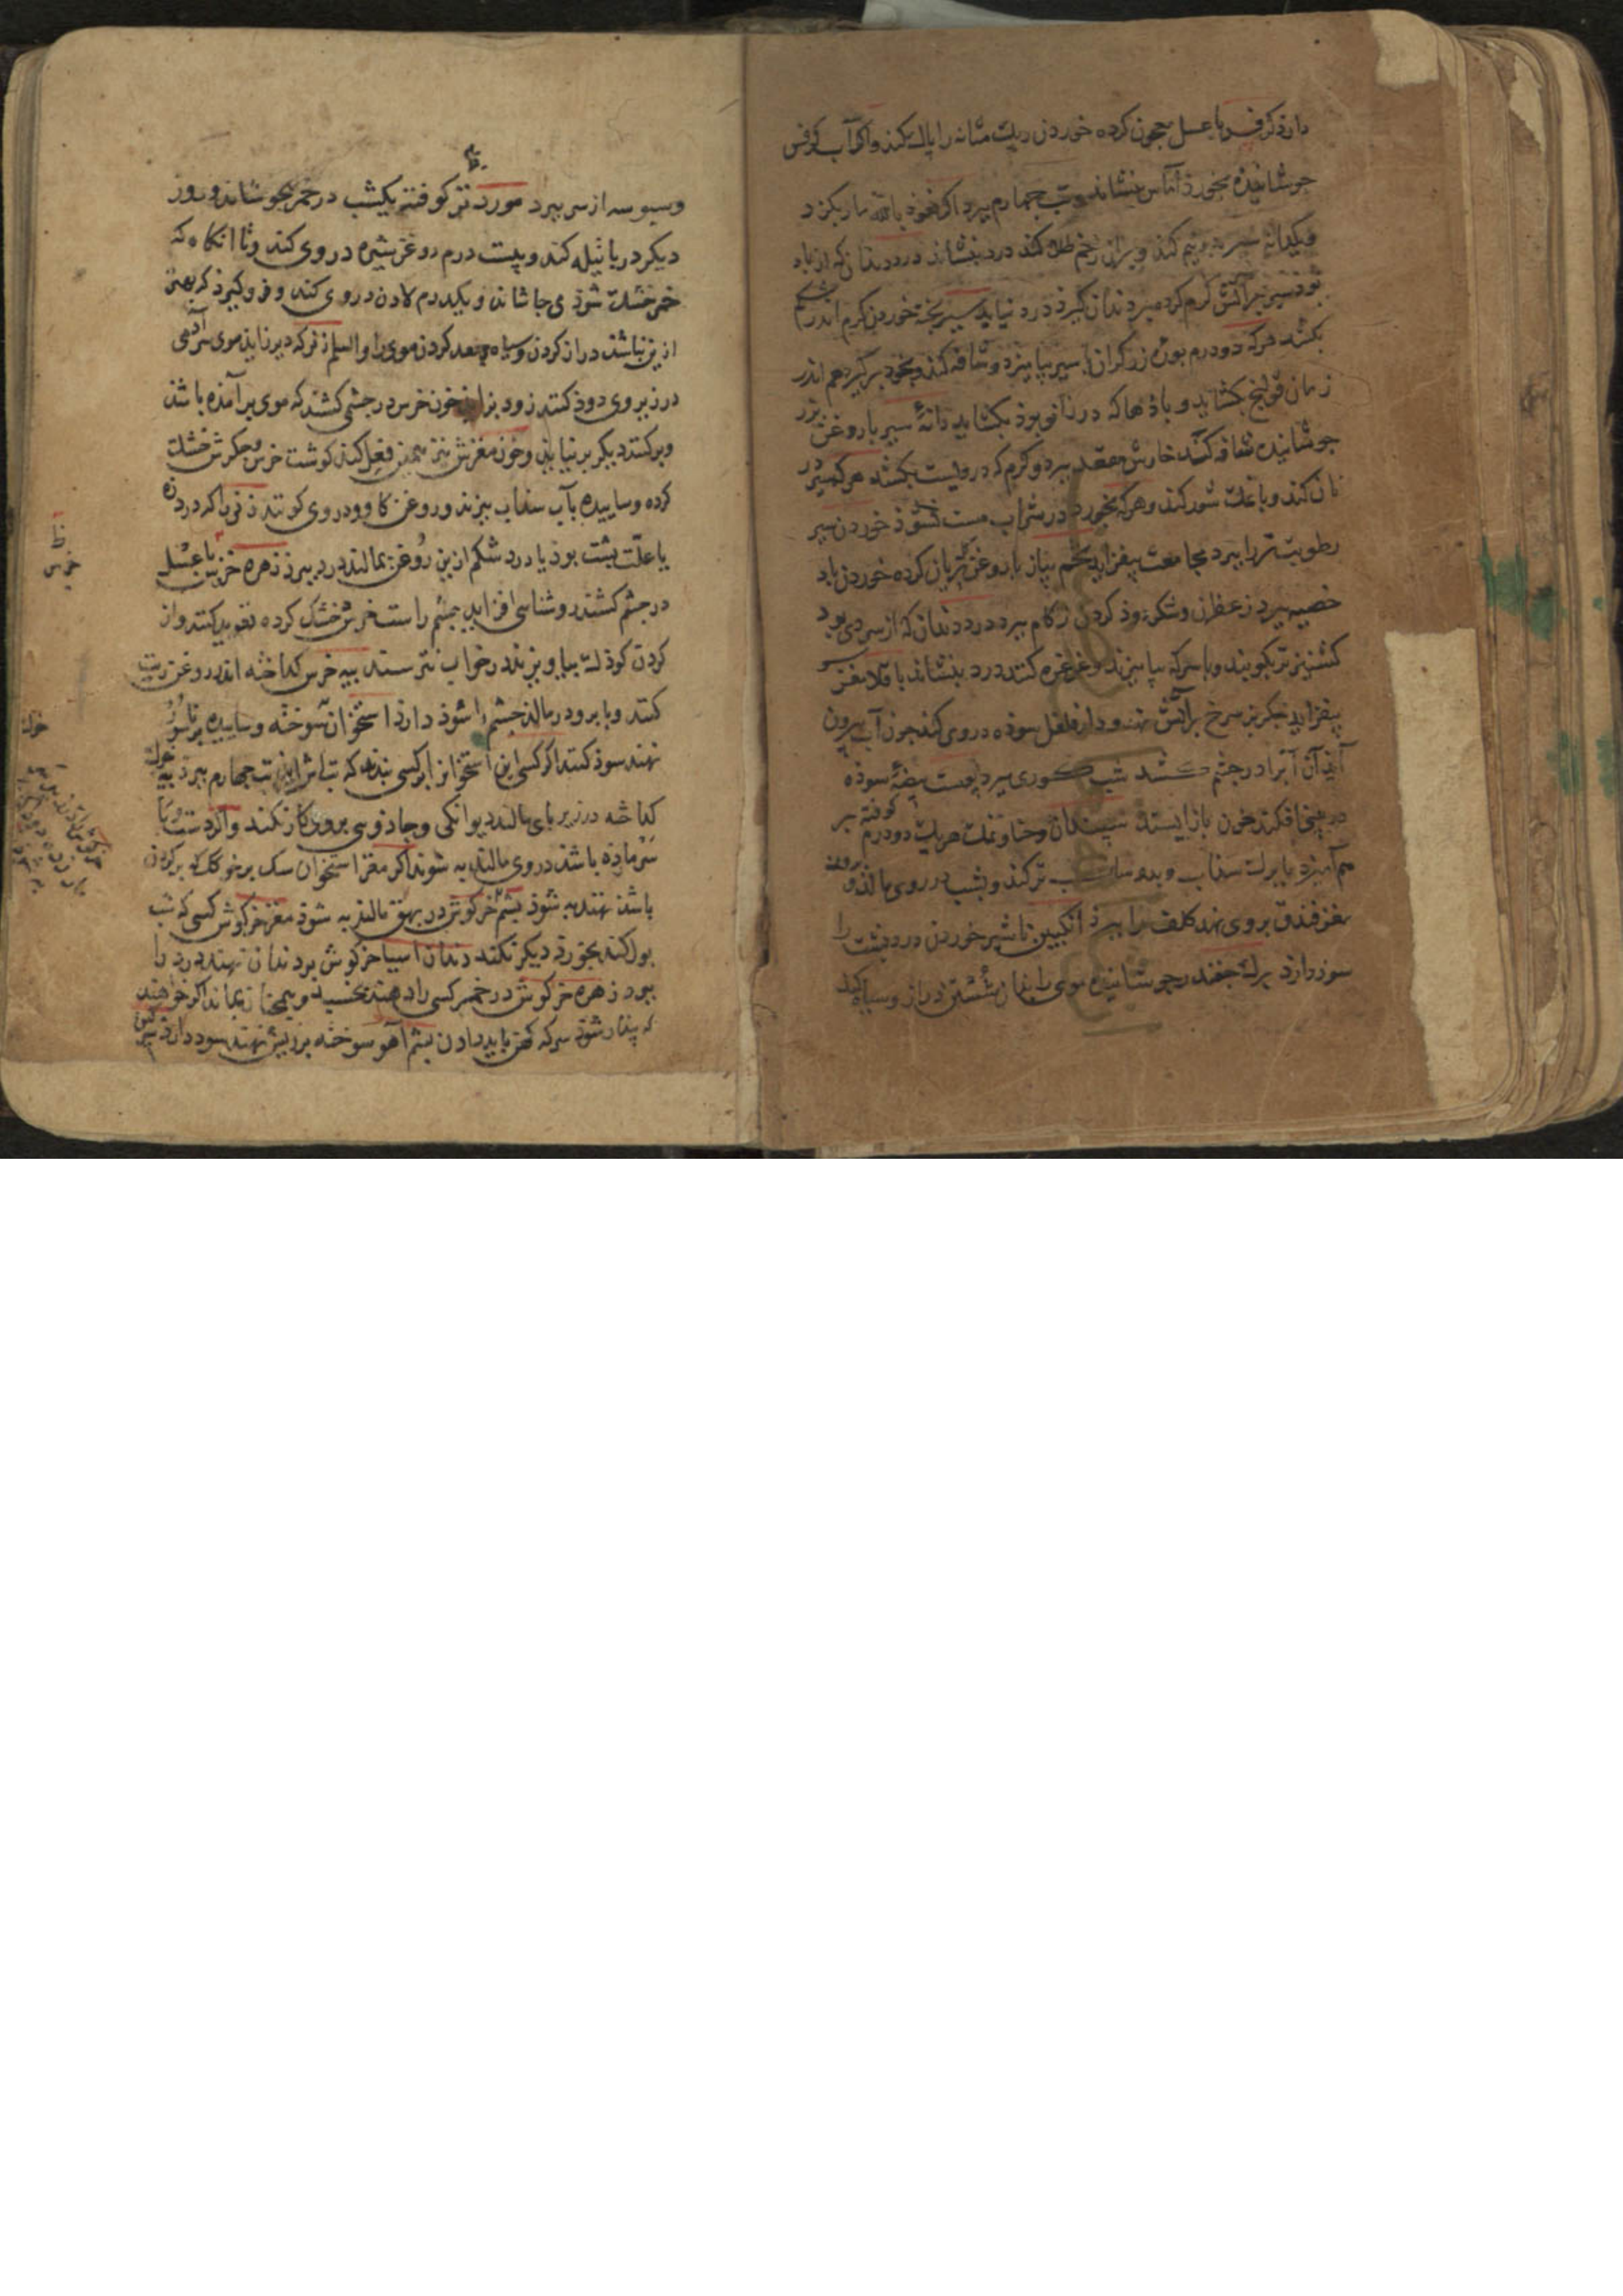 دارد کرفس با عسل معجون کرده خوردن ریک مثانه را پاک کند و اکر آب کرفس
جوشانیده بخورد آماس بنشاند و تب چهارم ببرد اکر نعوذ بالله مار بکزد
و یکدانه سیر بدونیم کند و بران زخم طلا کند درد بنشاند درد دندان که از باد
بود سیر بر آتش کرم کرده بر دندان کیرد درد نیاید سیر پخته خوردن کرم اندر شکم
بکشد هرکه دو درم بوره زرکران با سیر بیامیزد و شافه کند و بخود برکیرد هم اندر
زمان قولنج بکشاید و بادها که در ناف بود بکشاید دانهٔ سیر با روغن بزر
جوشانیده شافه کند خارش مقعد ببرد و کرم که درویست بکشد هرکه سیر در
نان کند و با نمک شور کند و هرکه بخورد در شراب مست نشود خوردن سیر
رطوبت تر را ببرد مجامعت بیفزاید تخم پیاز با روغن بریان کرده خوردن باد
خصیه ببرد زعفران و شکر دود کردن زکام ببرد درد دندان که از سردی بود
کشنیز تر بکوبند و با سرکه بیامیزند و غرغره کنند درد بنشاند باقلا مغز
بیفزاید جکر بز سرخ بر آتش نهند و دار فلفل سوده در وی کند چون آب بیرون
آید آن آب را در چشم کشد شب کوری ببرد پوست بیضهٔ سوده
در بینی افکند خون باز ایستد سپندان و حنا و نمک هر یک دو درم کوفته بر
هم آمیزد با برک سداب و بدو ترکند و بشب در روی مالد و بروغن
مغز فندق بروی نهد کلف را ببرد انکبین با شیر خوردن درد پشت را
سوز دارد برک چغندر جوشانیده موی را بدان شستن دراز و سیاه کند
و سبوسه از سر ببرد مورد تر کوفته یکشب در خمر بجوشاند و روز
دیکر در پاتیله کند و بیست درم روغن شیره در وی کند و تا انکاه که
خمر خشک شود می جوشاند و یکدرم لادن در وی کند و فرو کیرد که بهتر
ازین نباشد دراز کردن و سیاه و جعد کردن موی را و السلم ار نر که دیر نزاید موی سر آدمی
در زیر وی دود کنند زود بزاید خون خرس در چشمی کشند که موی بر آمده باشد
و برکنند دیکر بر نیاید و خون مغزش نیز همین فعل کند کوشت خرس و جکرش خشک
کرده و ساییده بآب سداب بپزند و روغن کاو و در وی کونند زنی را که درد زه
یا علت پشت بود یا درد شکم ازین روغن بمالند درد ببرد زهره خرس با عسل
در چشم کشند روشنایی افزاید چشم راست خرس خشک کرده تعوید کنند و از
کردن کودک بیاویزند در خواب نترسند پیه خرس کداخته اندر روغن زیت
کنند و بابرو در مالد خشم را شود دارد استخوان سوخته و ساییده بر ناسور
نهند سود کند اکر کسی این استخوان بر کسی بندد که تب آید تب چهارم ببرد پیه خوک
کداخته در زیر پای مالند دیوانکی و جادوی برو کار نکند و اکر دست و پا
سرمازده باشد در وی مالند به شوند اکر مغز استخوان سک بر خوک که بر کردن
باشد نهند به شود پشم خرکوش در بهق مالند به شود مغز خرکوش کسی که شب
بول کند بخورد دیکر نکند دندان آسیا خرکوش بر دندان نهند درد را
ببرد زهره خرکوش در خمر کسی را دهند بخسبد و همچنان بماند اکر خواهند
که بیدار شود سرکه کهن باید دادن پشم آهو سوخته بر ریش نهند سود دارد
خرس
خوک